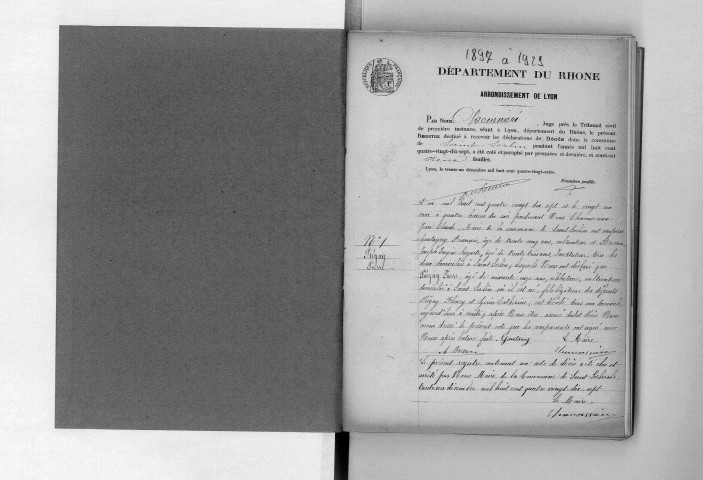 1897 à 1923
DÉPARTEMENT DU RHONE
ARRONDISSEMENT DE LYON
Par Nous, Juge près le Tribunal civil
de première instance, séant à Lyon, département du Rhône, le présent
Registre destiné à recevoir les déclarations de Décès dans la commune
de Saint-Sorlin pendant l'année mil huit cent
quatre-vingt-dix-sept, a été coté et paraphé par première et dernière, et contient
deux feuilles.
Lyon, le trente un décembre mil huit cent quatre-vingt-seize.
Première feuille.
L'an mil huit cent quatre vingt dix sept et le vingt
à quatre heures du soir pardevant Nous
Jean Claude, Maire de la commune de Saint Sorlin ont comparu
âgé de trente cinq ans, cultivateur et
Joseph Eugène Auguste, âgé de trente ans, Instituteur, tous les
deux domiciliés à Saint Sorlin, lesquels Nous ont déclaré que
Pierre, âgé de soixante onze ans, célibataire, cultivateur,
domicilié à Saint Sorlin où il est né, fils légitime des défunts
et Catherine, est décédé dans son domicile
aujourd'hui à midi; après Nous être assuré dudit décès Nous
avons dressé le présent acte que les comparants ont signé avec
Nous après lecture faite. Le Maire
N° 1
Le présent registre contenant un acte de décès a été clos et
arrêté par Nous Maire de la Commune de Saint Sorlin le
trente un décembre mil huit cent quatre vingt dix sept
Le Maire